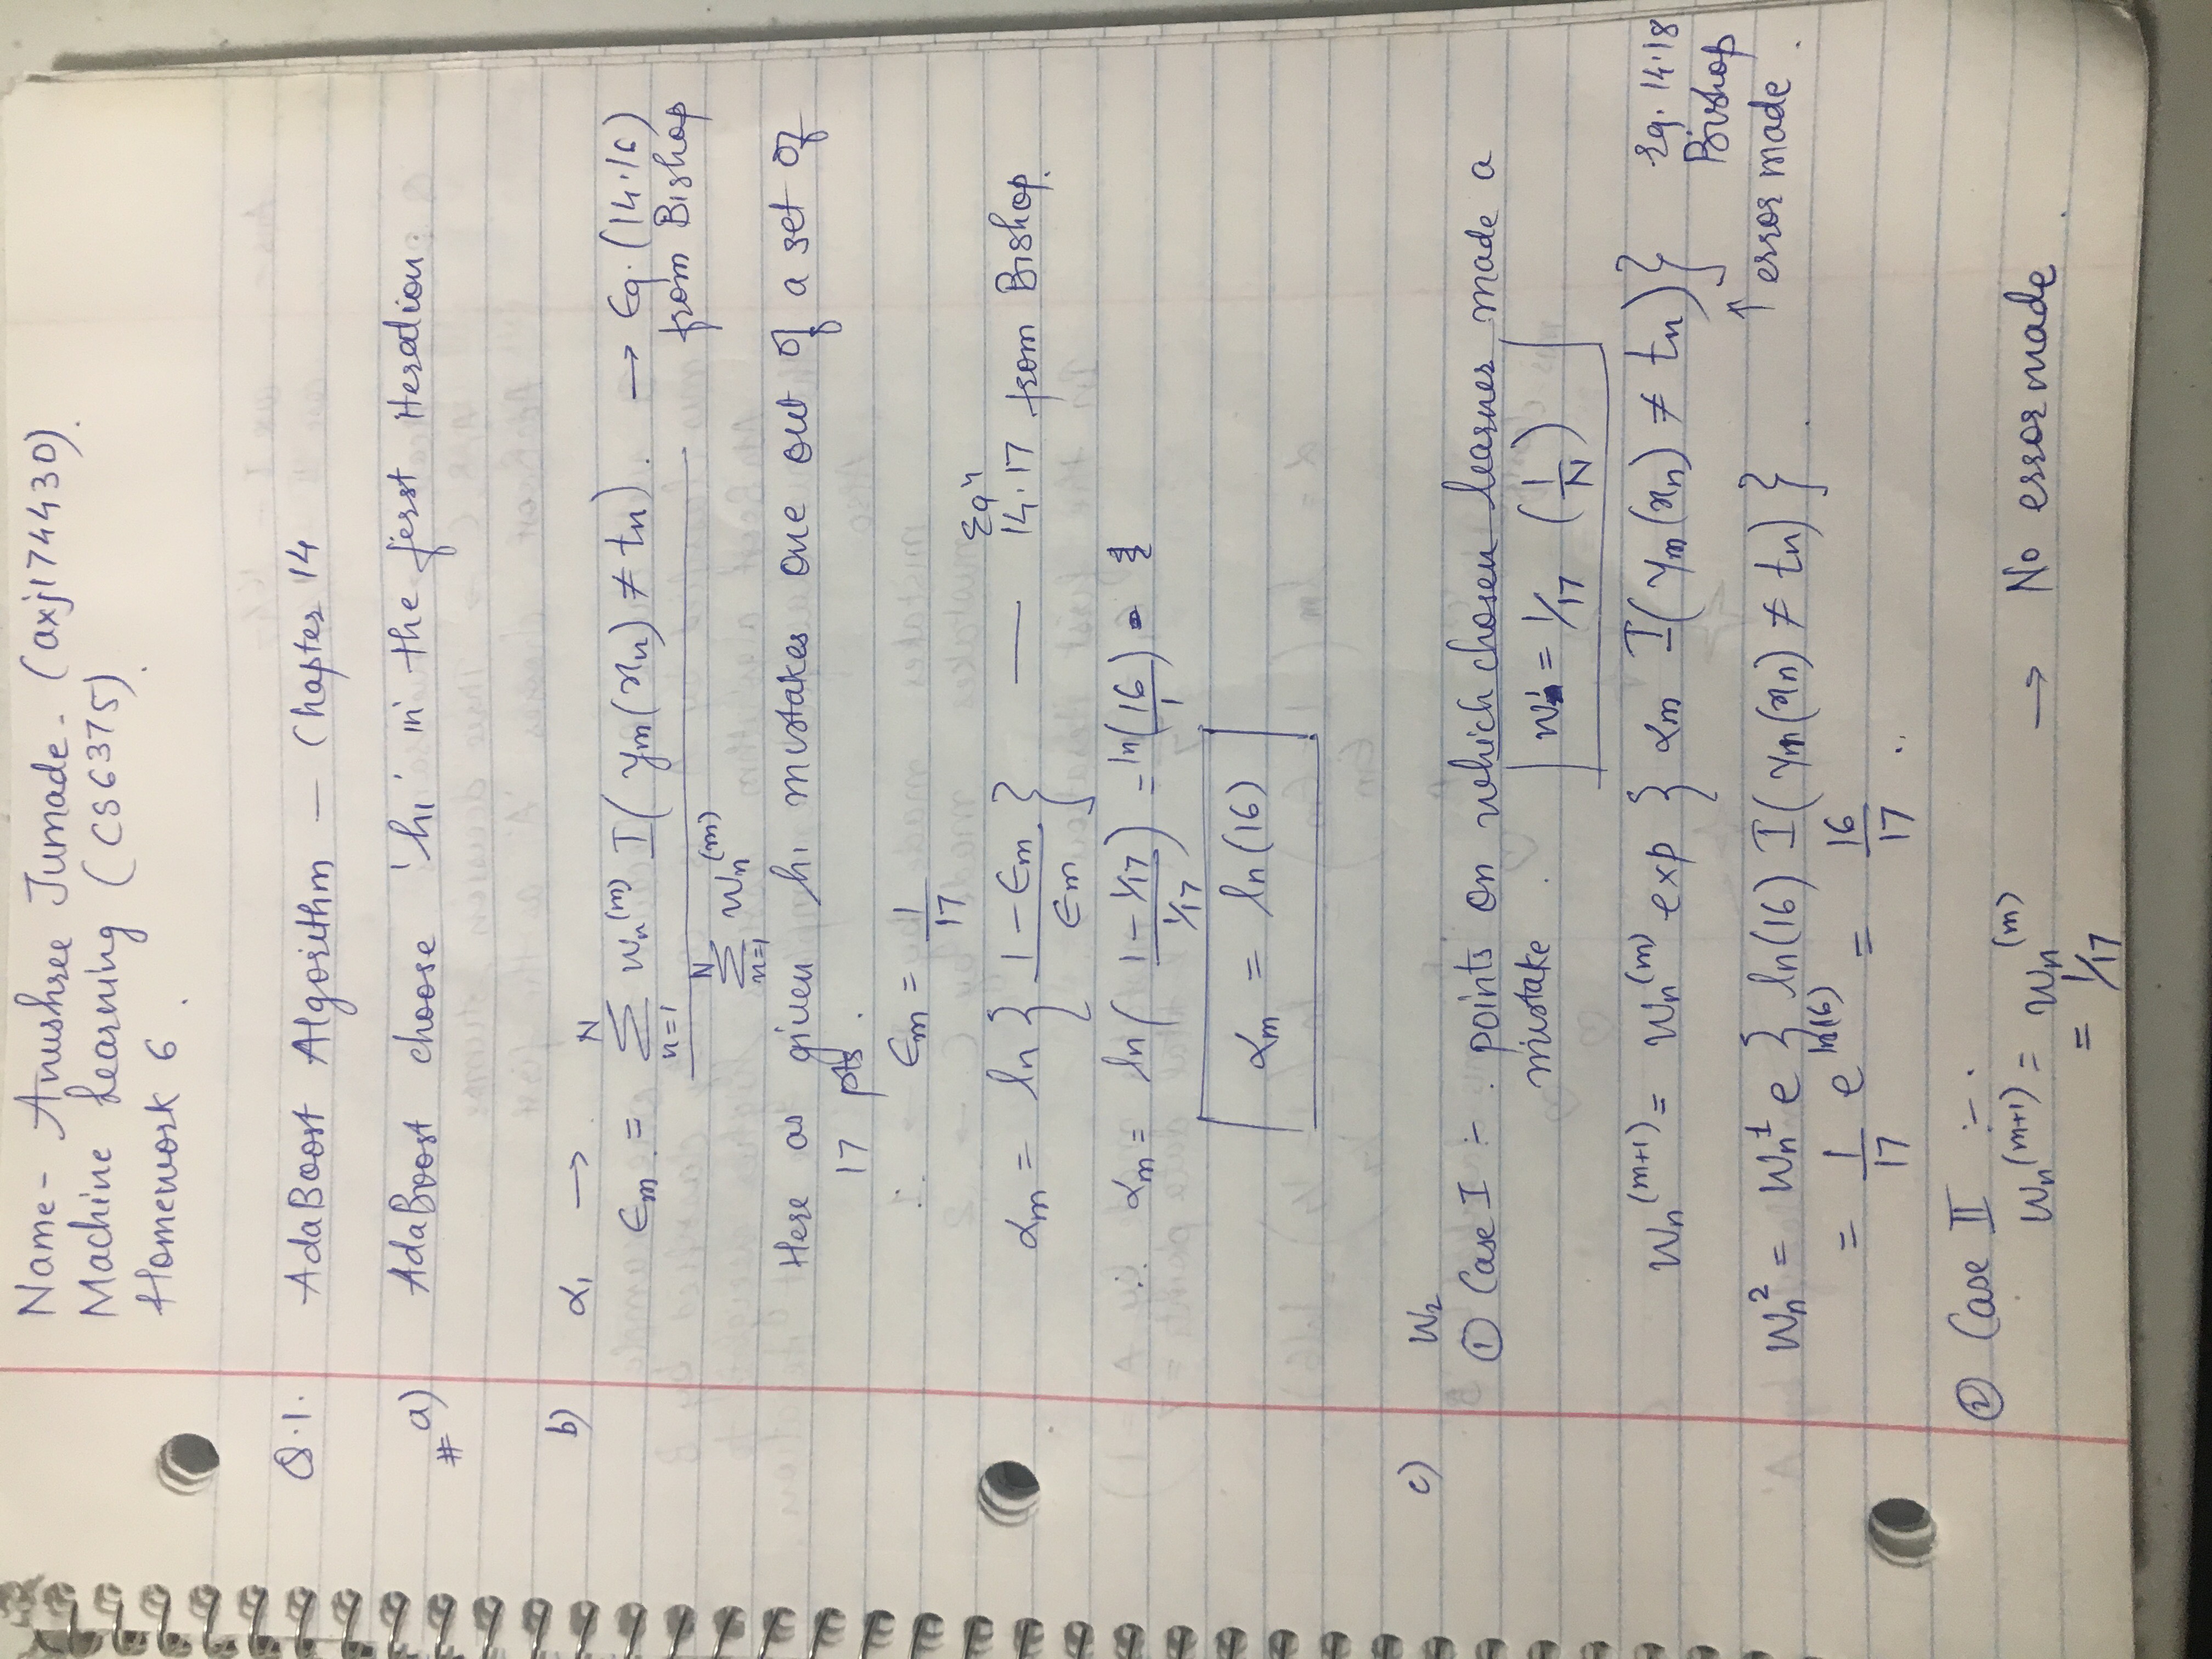 Name - Anushree Jumade. (axj174430).
Machine Learning (CS6375).
Homework 6.
Q.1. AdaBoost Algorithm — Chapter 14
# a) AdaBoost choose 'h1' in the first iteration.
b) α1 →
ϵm = Σ_{n=1}^{N} wn^(m) I( ym(xn) ≠ tn ). / Σ_{n=1}^{N} wn^(m) → Eq. (14.16)
from Bishop
Here as given h1 mistakes one out of a set of
17 pts.
∴ ϵm = 1/17
αm = ln { (1 - ϵm) / ϵm } — Eqn 14.17 from Bishop.
∴ αm = ln( (1 - 1/17) / (1/17) ) = ln(16/1)
αm = ln(16)
c) W2
① Case I :- points on which chosen learner made a
mistake. W1 = 1/17 (1/N)
Wn^(m+1) = Wn^(m) exp { αm I( ym(xn) ≠ tn ) } Eq. 14.18
Bishop
↑ error made.
Wn^2 = Wn^1 e { ln(16) I( ym(xn) ≠ tn ) }.
= 1/17 e^ln(16) = 16/17
② Case II :-
Wn^(m+1) = Wn^(m) → No error made.
= 1/17